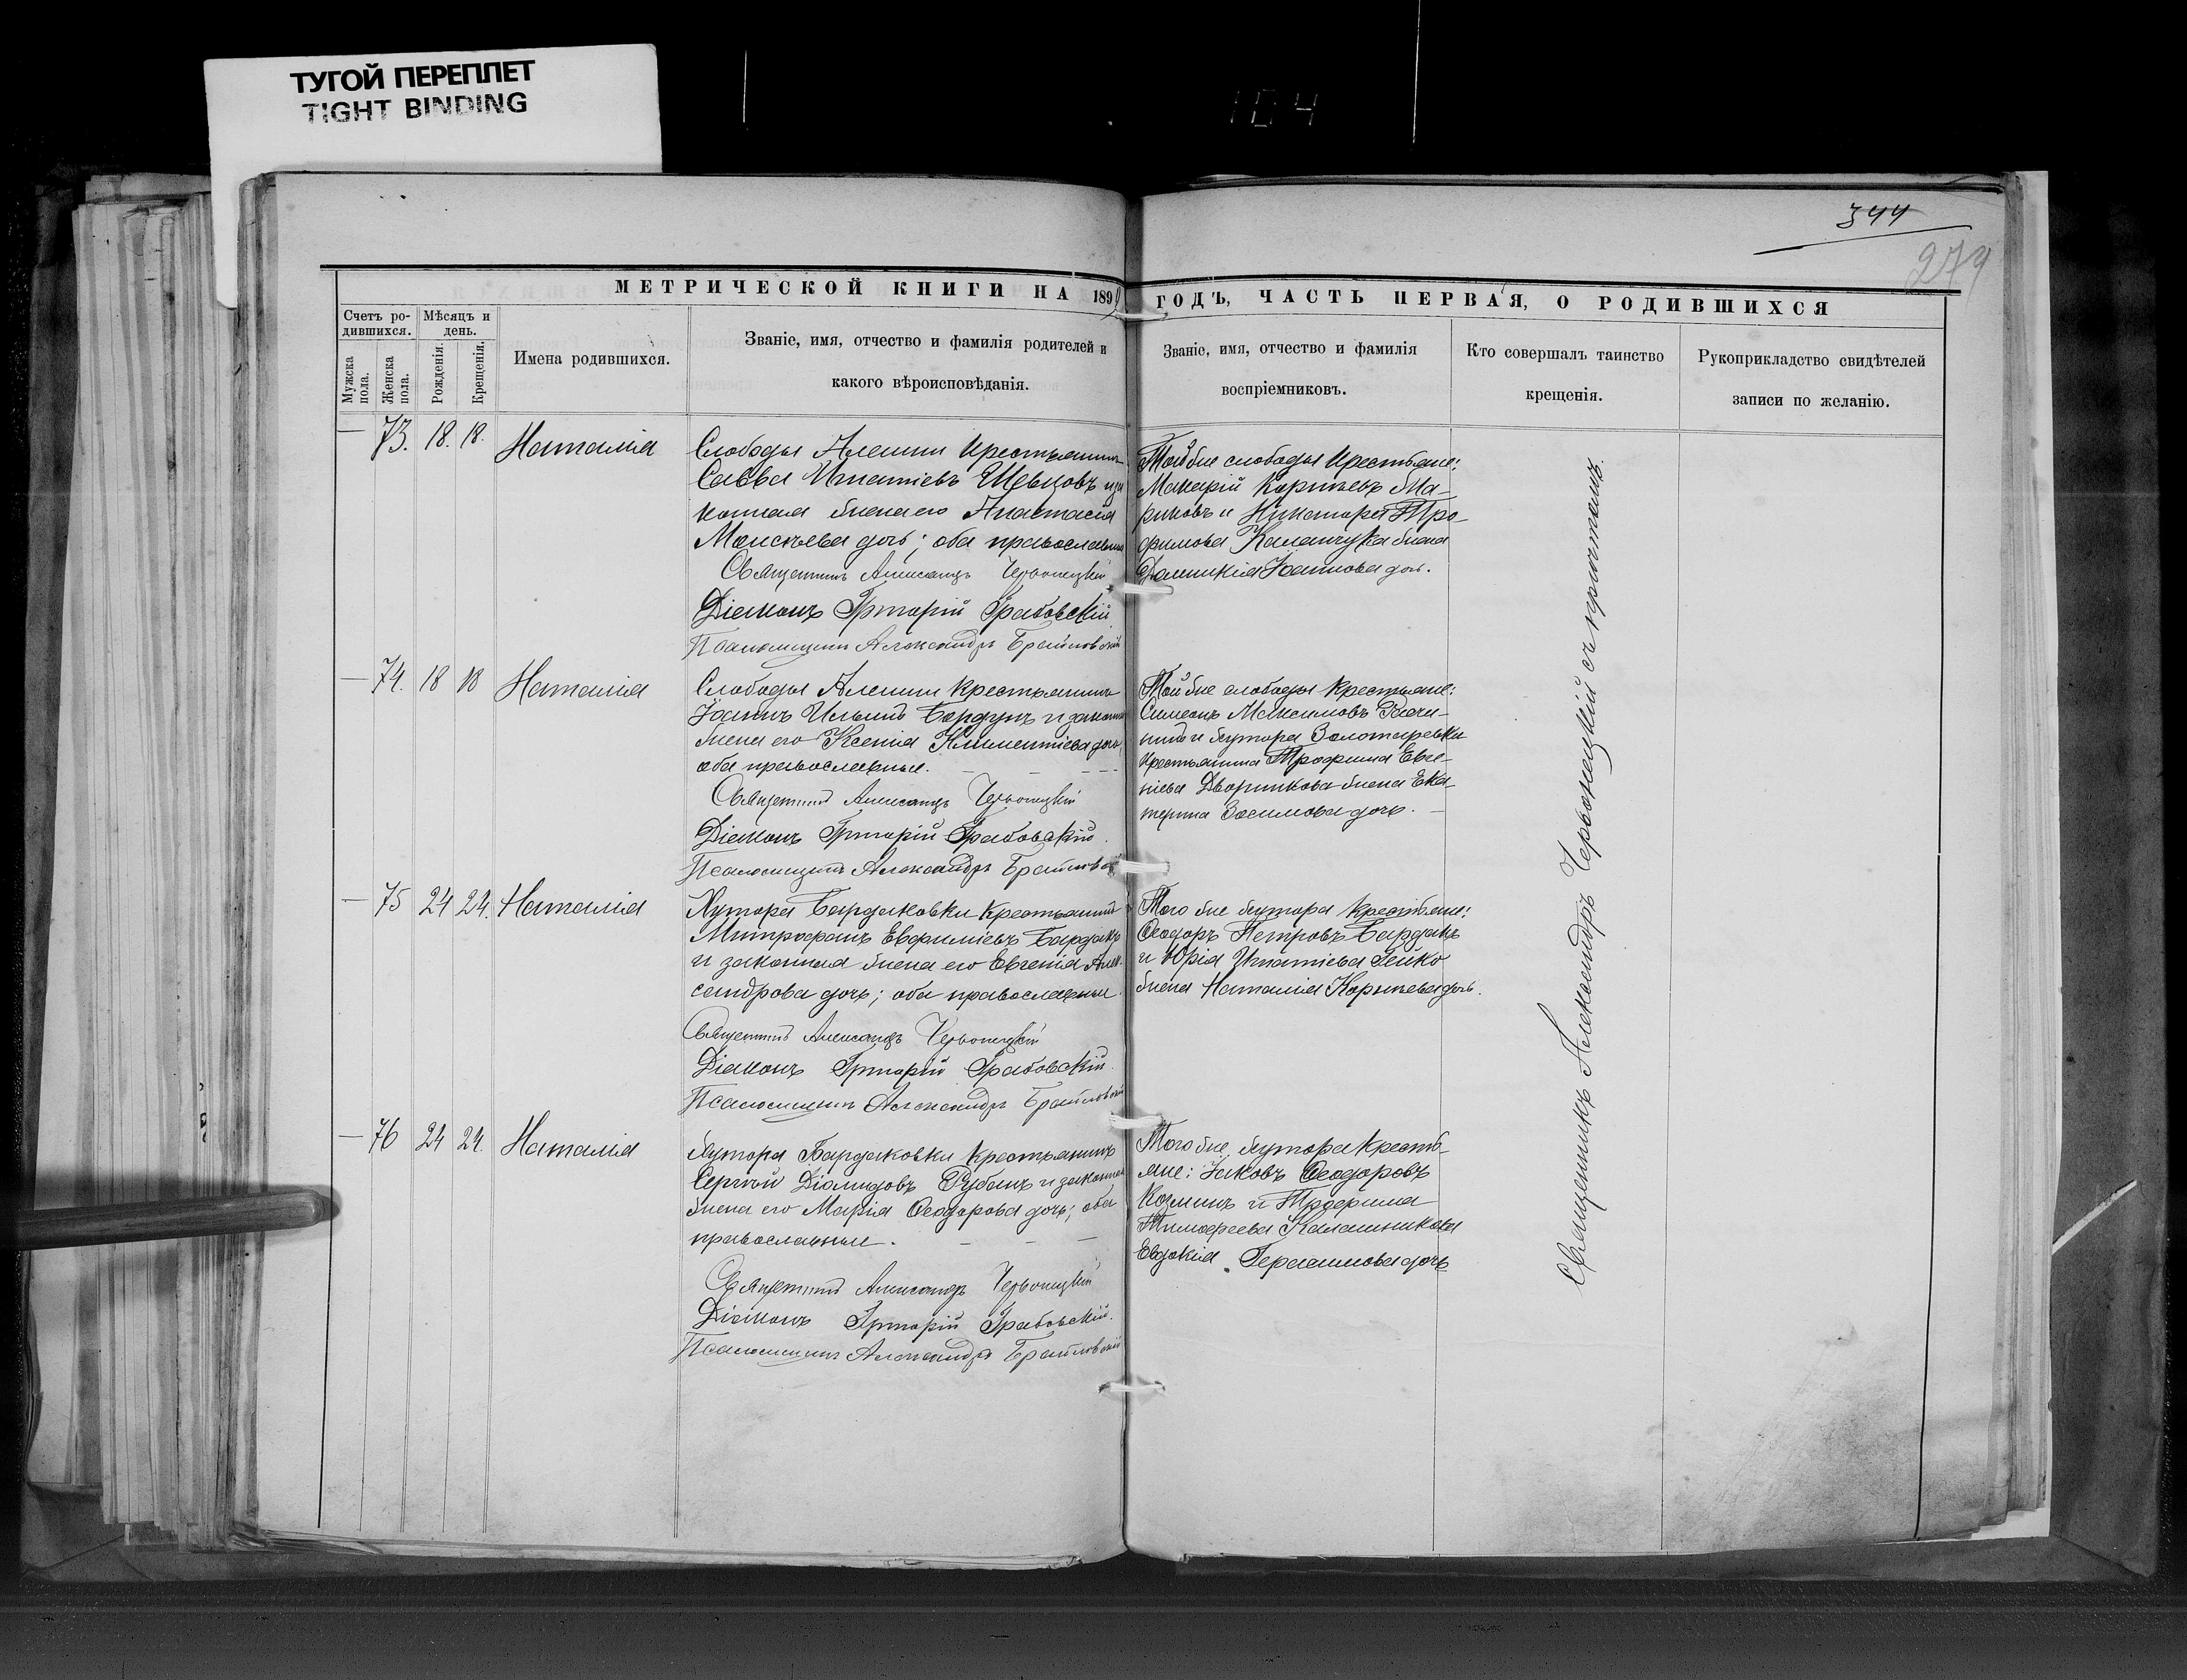 ТУГОЙ ПЕРЕПЛЕТ
TIGHT BINDING
104
344
279
МЕТРИЧЕСКОЙ КНИГИ НА 189
ГОДЪ, ЧАСТЬ ПЕРВАЯ, О РОДИВШИХСЯ
Счетъ ро-
дившихся.
Мужска пола.
Женска пола.
Мѣсяцъ и
день.
Рожденія.
Крещенія.
Имена родившихся.
Званіе, имя, отчество и фамилія родителей и
какого вѣроисповѣданія.
Званіе, имя, отчество и фамилія
воспріемниковъ.
Кто совершалъ таинство
крещенія.
Рукоприкладство свидѣтелей
записи по желанію.
— 73. 18. 18. Наталія
Слободы Алешни Крестьянинъ
Савва Игнатіевъ Шевцовъ и за
конная жена его Анастасія
Моисѣева дочь; оба православные
Священникъ Александръ Червонецкій
Діаконъ Григорій Грабовскій
Псаломщикъ Александръ Браиловскій
Той же слободы Крестьяне:
Макарій Корнѣевъ Ма-
риковъ и Никанора Тро-
фимова Каланчука жена
Домникія Іоаннова доч.
— 74. 18 18 Наталія
Слободы Алешни Крестьянинъ
Іоаннъ Ильинъ Бардунъ и законная
жена его Ксенія Климентіева дочь,
оба православные.
Священникъ Александръ Червонецкій
Діаконъ Григорій Грабовскій.
Псаломщикъ Александръ Браиловскій
Той же слободы Крестьяне:
Симеонъ Максимовъ
и хутора Золотаревки
Крестьянина Трофима Евге-
ніева Дворникова жена Ека-
терина Зосимова дочь.
— 75 24 24. Наталія
Хутора Бардаковки Крестьянинъ
Митрофанъ Евфиміевъ Бардакъ
и законная жена его Евгенія Алек-
сандрова дочь; оба православные
Священникъ Александръ Червонецкій
Діаконъ Григорій Грабовскій.
Псаломщикъ Александръ Браиловскій
Того же хутора Крестьяне:
Ѳеодоръ Петровъ Бардакъ
и Юрія Игнатіева Гейко
жена Наталія Корнѣева дочь.
— 76 24 24. Наталія
Хутора Бардаковки Крестьянинъ
Сергѣй Діомидовъ Рубанъ и законная
жена его Марія Ѳеодорова дочь; оба
православные.
Священникъ Александръ Червонецкій
Діаконъ Григорій Грабовскій.
Псаломщикъ Александръ Браиловскій
Того же хутора Кресть-
яне: Іаковъ Ѳеодоровъ
Козминъ и Трофима
Тимофеева Калашникова
Евдокія Герасимова дочь
Священникъ Александръ Червонецкій съ причтомъ.